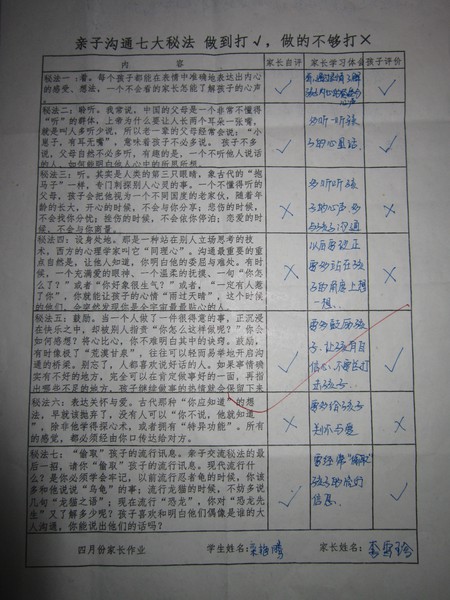 亲子沟通七大秘法 做到打√，做的不够打×
内 容 家长自评 家长学习体会 孩子评价
秘法一：看。每个孩子都能在表情中准确地表达出内心
的感受、想法，一个不会看的家长怎能了解孩子的心声。
秘法二：聆听。我常说，中国的父母是一个非常不懂得
“听”的群体，上帝为什么要让人长两个耳朵一张嘴，
就是叫人多听少说，所以老一辈的父母经常会说：“小
息子，有耳无嘴”，意味着孩子不必多说。 孩子不多
说，父母自然不必多听，有趣的是，一个不听他人说话
的人，如何能明白他人心中的所思所想。
多听、听孩
子的心里话.
秘法三：听。其实是人类的第三只眼睛，象古代的“抱
马子”一样，专门刺探别人心灵的事。一个不懂得听的
父母，孩子会把他视为一个不同国度的老家伙，随着年
龄的长大，开心的时候，不会与你分享；悲伤的时候，
不会找你分忧；挫伤的时候，不会让你停泊；恋爱的时
候，不会与你商量。
多听听孩
子的心声.多
与孩子沟通
秘法四：设身处地。那是一种站在别人立场思考的技
术，西方的心理学家叫它“同理心”。沟通最重要的重
点自然是，让他人知道，你明白他的委屈与难处，有时
候，一个充满爱的眼神、一个温柔的抚摸、一句“你怎
么了？”或者“你好象很生气？”或者，“一定有人惹
了你”，你就能让孩子的心情“雨过天晴”，这个时候
以后要改正
要多站在孩
子的角度上想
一想.
秘法五：鼓励。当一个人做了一件很得意的事，正沉浸
在快乐之中，却被别人指责“你怎么这样做呢？”你会
如何感想？将心比心，你不难明白其中的诀窍。鼓励，
有时像极了“荒漠甘泉”，往往可以轻而易举地开启沟
通的桥梁。别忘了，人都喜欢说好话的人。如果事情确
实有不好的地方，完全可以在肯定做事好的一面，再指
出哪些不足的地方，孩子继续做事的热情就会保留下来
要多鼓励孩
子.让孩子有自
信心.不要总打
击孩子.
秘法六：表达关怀与爱。古代人那种“你应知道”的想
法，早就该抛弃了，没有人可以“你不说，他就知道
”，除非他学得探心术，或者拥有“特异功能”，所有
的感觉，都必须经由你口传达给对方。
要多给孩子
关怀与爱
秘法七：“偷取”孩子的流行讯息。亲子交流秘法的最
后一招，请你“偷取”孩子的流行讯息。现代流行什
么？是你必须学会牢记，以前流行忍者龟的时候，你该
多和他说说“乌龟”的事；流行龙猫的时候，不妨多说
几句“龙猫之语”；现在流行“恐龙”，你对“恐龙先
生”又了解多少呢？孩子喜欢和明白他们偶像是谁的大
人沟通，你能说出他们的话吗？
要经常“偷取”
孩子的流行
信息.
四月份家长作业 学生姓名： 家长姓名：